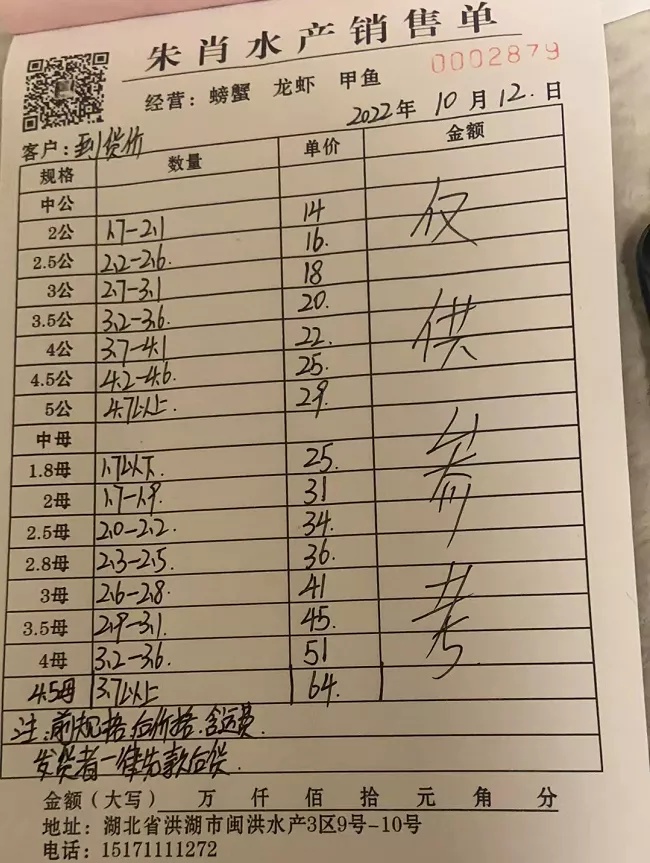 朱肖水产销售单
0002879
经营：螃蟹 龙虾 甲鱼
2022年 10月 12.日
客户：到货价
规格 数量 单价 金额
中公
2公 1.7-2.1 14
2.5公 2.2-2.6. 16.
3公 2.7-3.1 18
3.5公 3.2-3.6. 20.
4公 3.7-4.1 22.
4.5公 4.2-4.6. 25.
5公 4.7以上. 29.
中母
1.8母 1.7以下. 25.
2母 1.7-1.9. 31
2.5母 2.0-2.2. 34.
2.8母 2.3-2.5. 36.
3母 2.6-2.8. 41
3.5母 2.9-3.1. 45.
4母 3.2-3.6. 51
4.5母 3.7以上 64.
仅供参考
注：前规格，后价格，含运费.
发货者一律先款后货.
金额（大写） 万 仟 佰 拾 元 角 分
地址：湖北省洪湖市闽洪水产3区9号-10号
电话：15171111272